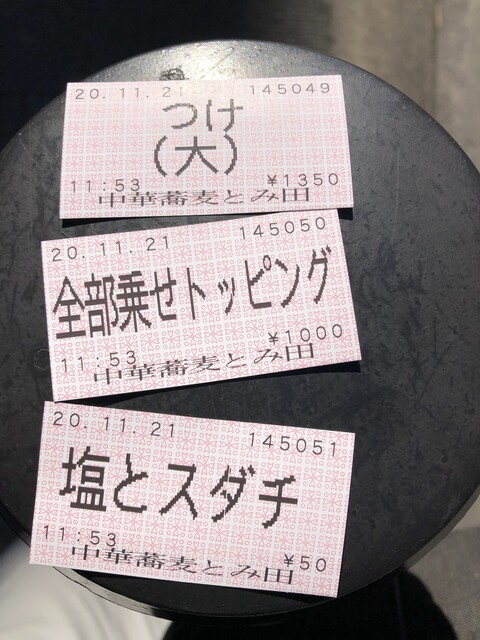 20.11.21 145049
つけ
(大)
11:53 ¥1350
中華蕎麦とみ田
20.11.21 145050
全部乗せトッピング
11:53 ¥1000
中華蕎麦とみ田
20.11.21 145051
塩とスダチ
11:53 ¥50
中華蕎麦とみ田